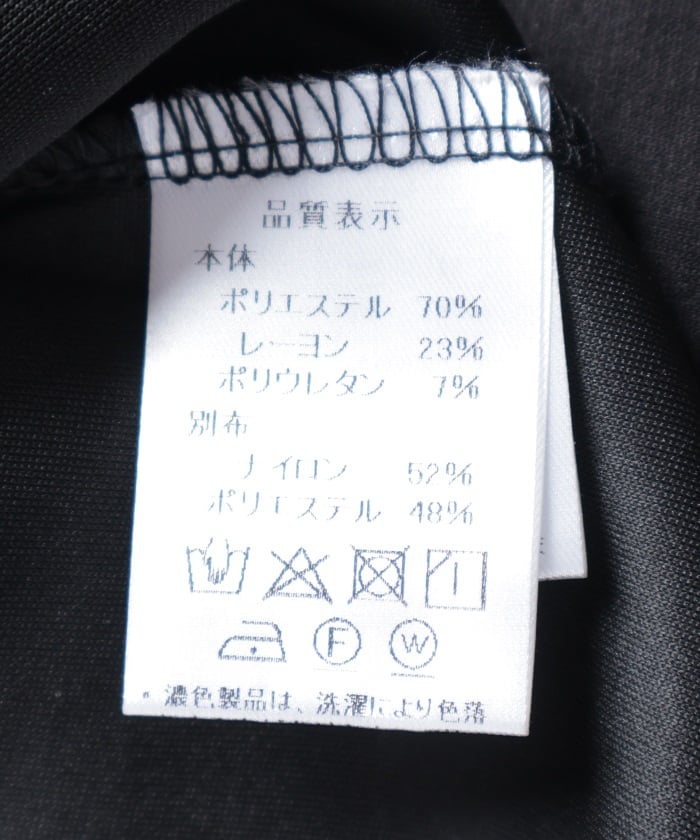 品質表示
本体
ポリエステル 70%
レーヨン 23%
ポリウレタン 7%
別布
ナイロン 52%
ポリエステル 48%
F W
・濃色製品は、洗濯により色落